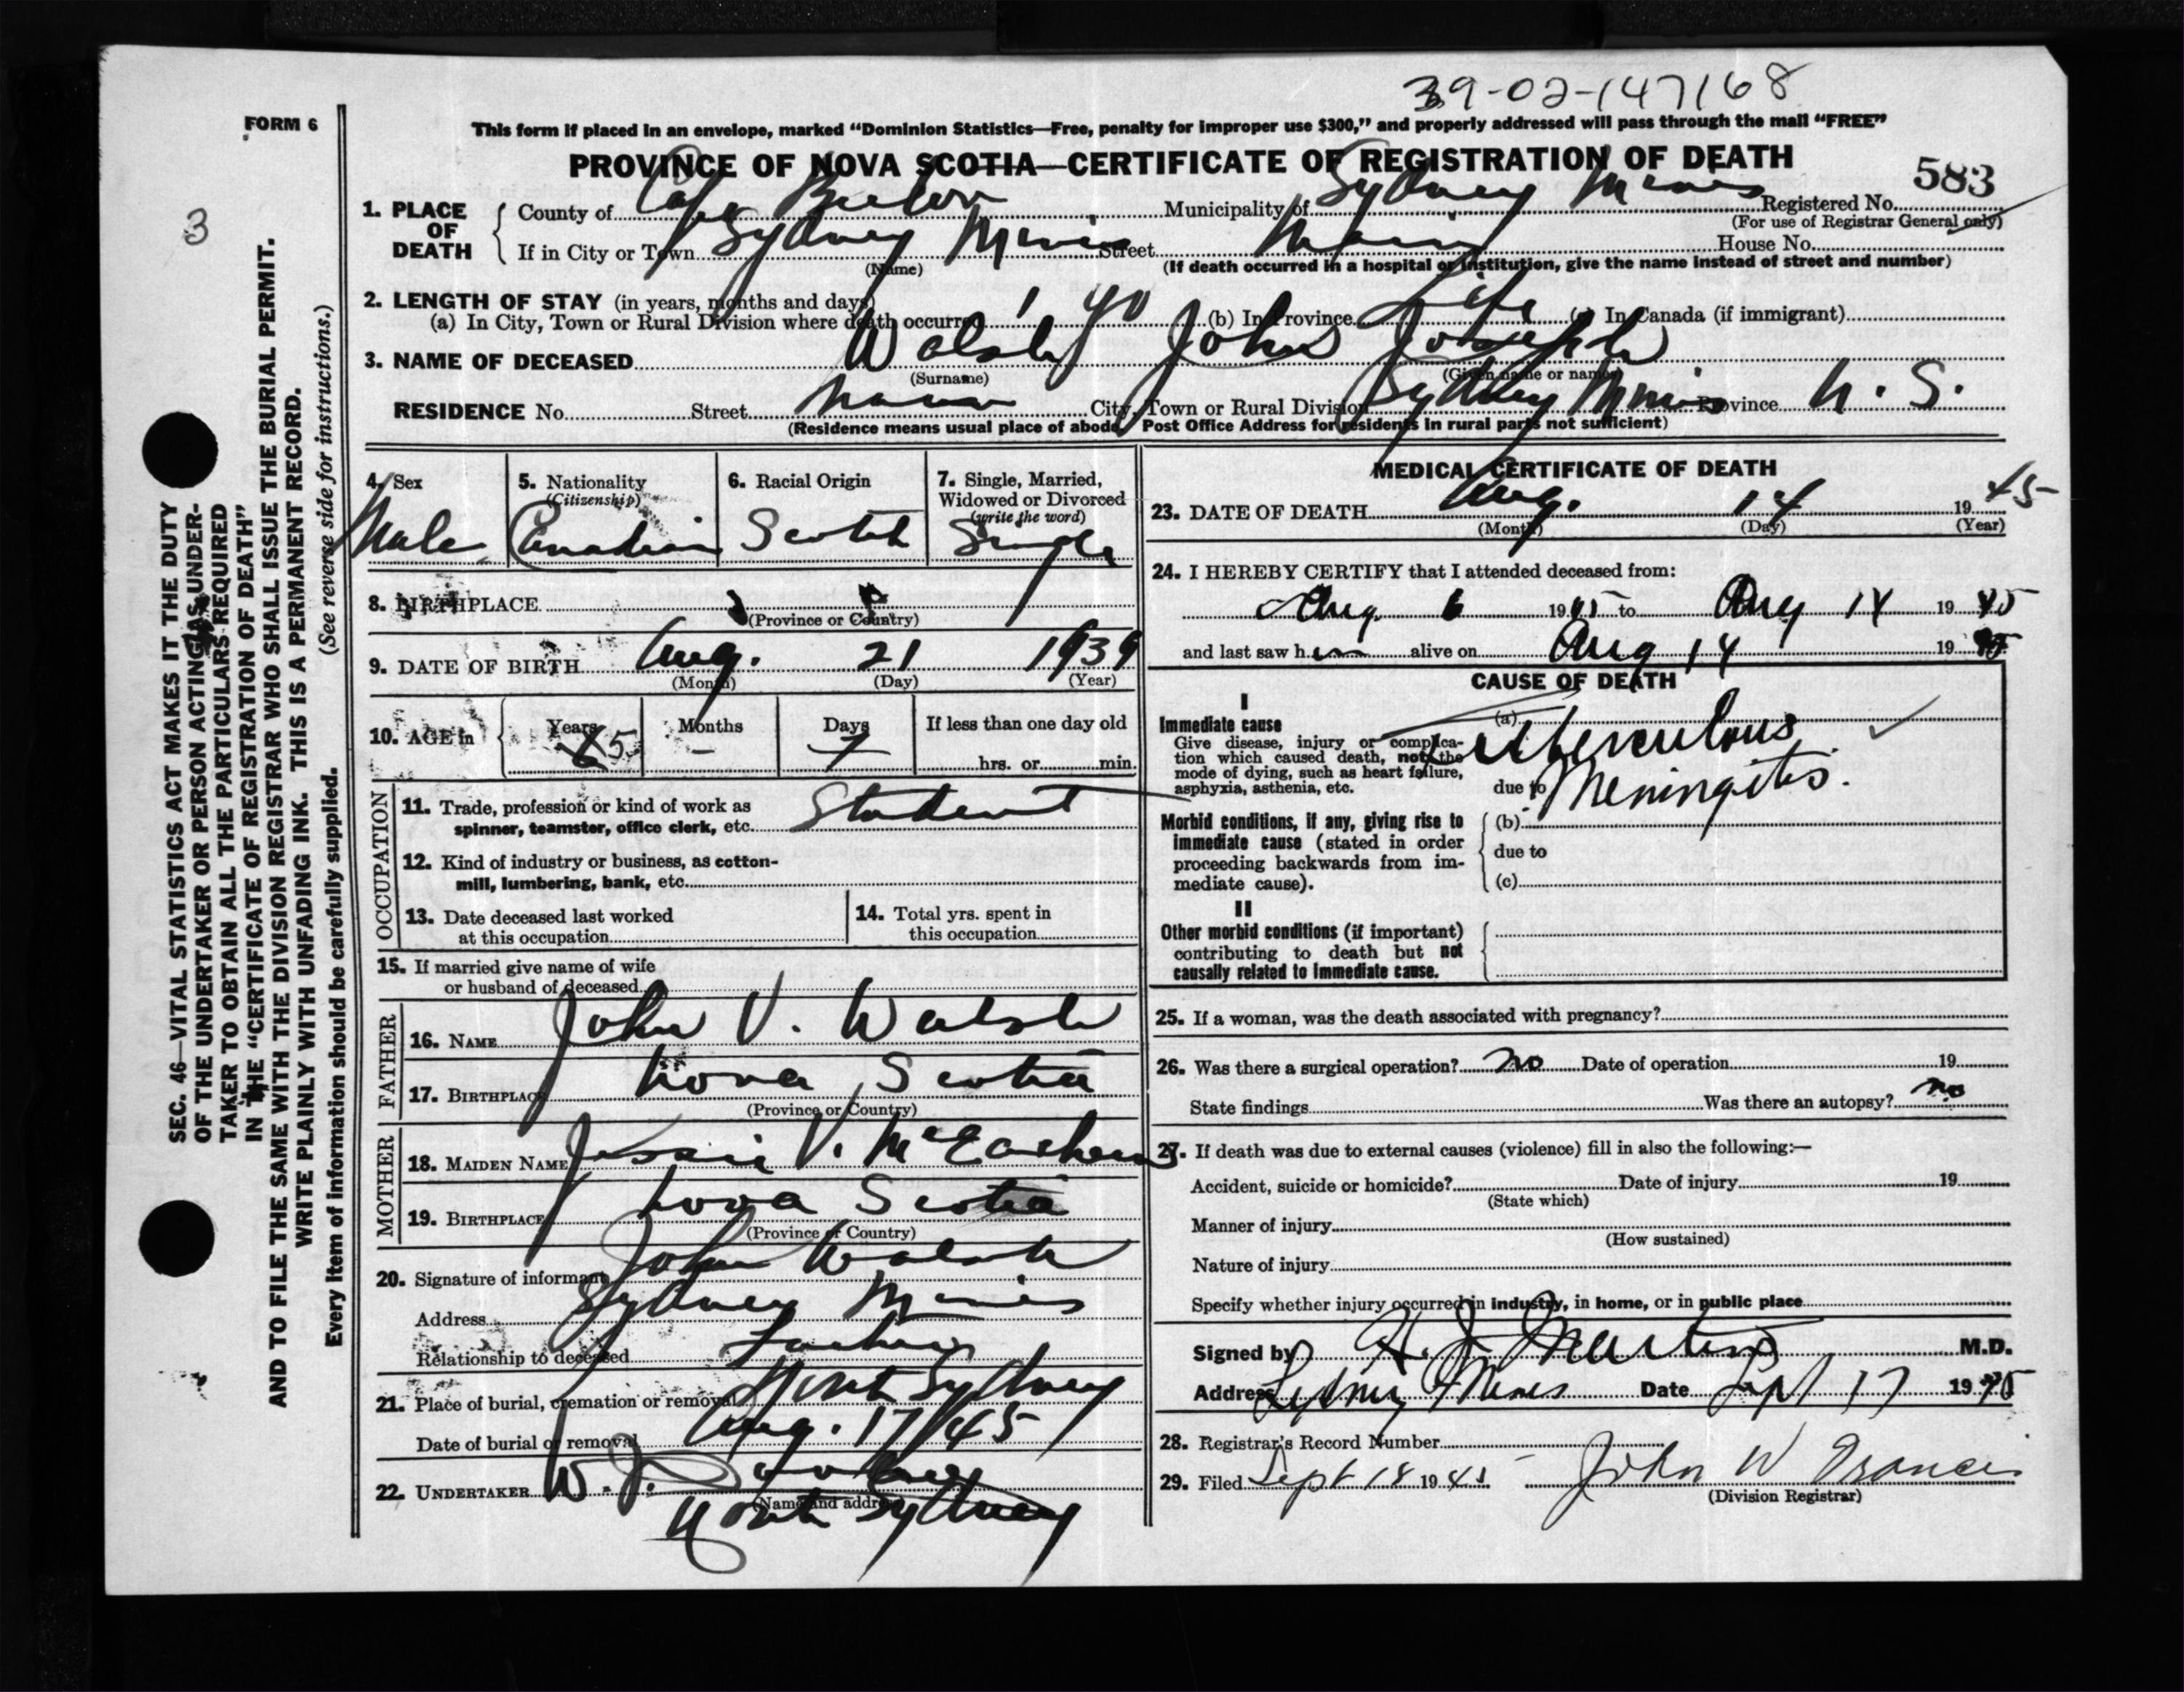 39-02-147168
FORM 6
This form if placed in an envelope, marked “Dominion Statistics—Free, penalty for improper use $300,” and properly addressed will pass through the mail “FREE”
PROVINCE OF NOVA SCOTIA—CERTIFICATE OF REGISTRATION OF DEATH
583
3
1. PLACE OF DEATH
County of Cape Breton Municipality of Sydney Mines Registered No.
(For use of Registrar General only)
If in City or Town Sydney Mines Street Main House No.
(Name) (If death occurred in a hospital or institution, give the name instead of street and number)
2. LENGTH OF STAY (in years, months and days)
(a) In City, Town or Rural Division where death occurred (b) In Province Life (c) In Canada (if immigrant)
3. NAME OF DECEASED Walsh John Joseph
(Surname) (Given name or names)
RESIDENCE No. Street City, Town or Rural Division Sydney Mines Province N. S.
(Residence means usual place of abode. Post Office Address for residents in rural parts not sufficient)
4. Sex
Male
5. Nationality
(Citizenship)
Canadian
6. Racial Origin
Scotch
7. Single, Married,
Widowed or Divorced
(write the word)
Single
8. BIRTHPLACE
(Province or Country)
9. DATE OF BIRTH Aug. 21 1939
(Month) (Day) (Year)
10. AGE in Years 5 Months - Days 7 If less than one day old
hrs. or min.
OCCUPATION
11. Trade, profession or kind of work as
spinner, teamster, office clerk, etc. Student
12. Kind of industry or business, as cotton-
mill, lumbering, bank, etc.
13. Date deceased last worked
at this occupation
14. Total yrs. spent in
this occupation
15. If married give name of wife
or husband of deceased
FATHER
16. NAME John V. Walsh
17. BIRTHPLACE Nova Scotia
(Province or Country)
MOTHER
18. MAIDEN NAME Jessie V. McEachern
19. BIRTHPLACE Nova Scotia
(Province or Country)
20. Signature of informant John Walsh
Address Sydney Mines
Relationship to deceased Father
21. Place of burial, cremation or removal North Sydney
Date of burial or removal Aug. 17/45
22. UNDERTAKER W. J.
(Name and address)
North Sydney
MEDICAL CERTIFICATE OF DEATH
23. DATE OF DEATH Aug. 14 1945
(Month) (Day) (Year)
24. I HEREBY CERTIFY that I attended deceased from:
Aug 6 1945 to Aug 14 1945
and last saw him alive on Aug 14 1945
CAUSE OF DEATH
I
Immediate cause
Give disease, injury or complica-
tion which caused death, not the
mode of dying, such as heart failure,
asphyxia, asthenia, etc.
(a) Tuberculous
due to Meningitis.
Morbid conditions, if any, giving rise to
immediate cause (stated in order
proceeding backwards from im-
mediate cause).
(b)
due to
(c)
II
Other morbid conditions (if important)
contributing to death but not
causally related to immediate cause.
25. If a woman, was the death associated with pregnancy?
26. Was there a surgical operation? no Date of operation 19
State findings Was there an autopsy? no
27. If death was due to external causes (violence) fill in also the following:—
Accident, suicide or homicide? Date of injury 19
(State which)
Manner of injury
(How sustained)
Nature of injury
Specify whether injury occurred in industry, in home, or in public place
Signed by H. J. Martin M.D.
Address Sydney Mines Date Sept 17 1945
28. Registrar's Record Number
29. Filed Sept 18 1945 John W Francis
(Division Registrar)
SEC. 46—VITAL STATISTICS ACT MAKES IT THE DUTY
OF THE UNDERTAKER OR PERSON ACTING AS UNDER-
TAKER TO OBTAIN ALL THE PARTICULARS REQUIRED
IN THE “CERTIFICATE OF REGISTRATION OF DEATH”
AND TO FILE THE SAME WITH THE DIVISION REGISTRAR WHO SHALL ISSUE THE BURIAL PERMIT.
WRITE PLAINLY WITH UNFADING INK. THIS IS A PERMANENT RECORD.
Every item of information should be carefully supplied. (See reverse side for instructions.)